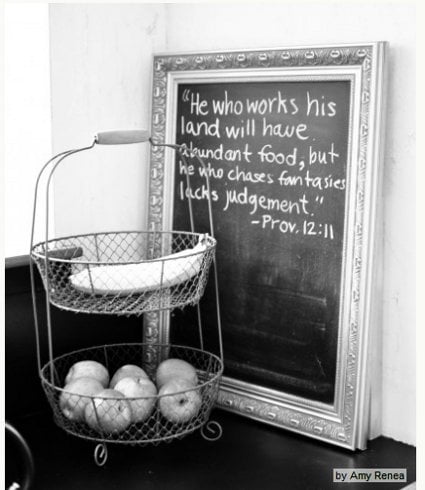 "He who works his
land will have
abundant food, but
he who chases fantasies
lacks judgement."
-Prov. 12:11
by Amy Renea